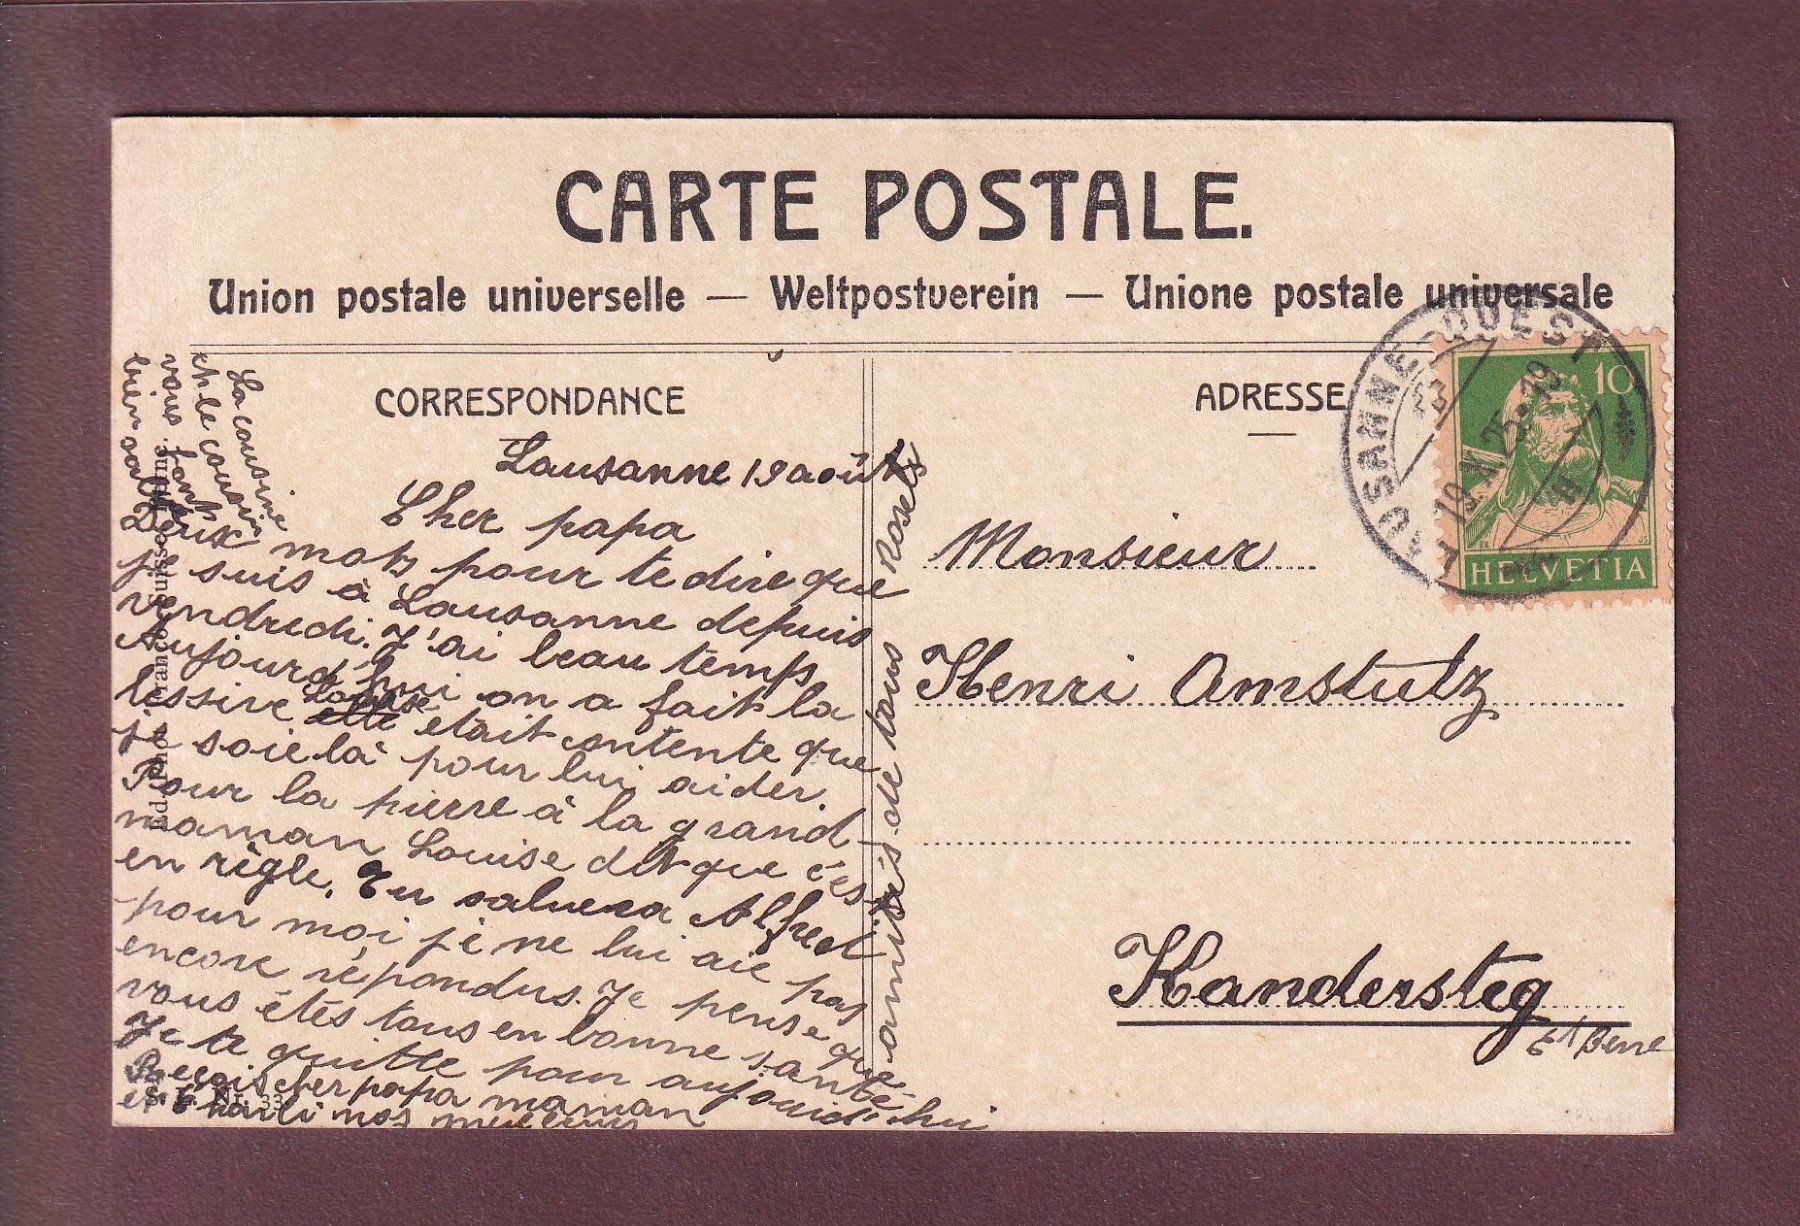 CARTE POSTALE.
Union postale universelle — Weltpostverein — Unione postale universale
CORRESPONDANCE
Lausanne 19 août
Cher papa
Deux mots pour te dire que
je suis à Lausanne depuis
vendredi. J'ai beau temps
Aujourd'hui on a fait la
lessive Louise était contente que
je soie là pour lui aider.
Pour la pierre à la grand-
maman Louise dit que c'est
en règle. Tu saluera Alfred
pour moi je ne lui aie pas
encore répondus. Je pense que
vous êtes tous en bonne santé
Je te quitte pour aujourd'hui
Reçois cher papa maman
et Charli nos meilleurs
amitiés de tous Rosets
La cousine
et le cousin
vous font
bien saluer
S. F. Nr. 33
ADRESSE
Monsieur
Henri Amstutz
Kandersteg
Ct Berne
LAUSANNE-OUEST
10
HELVETIA